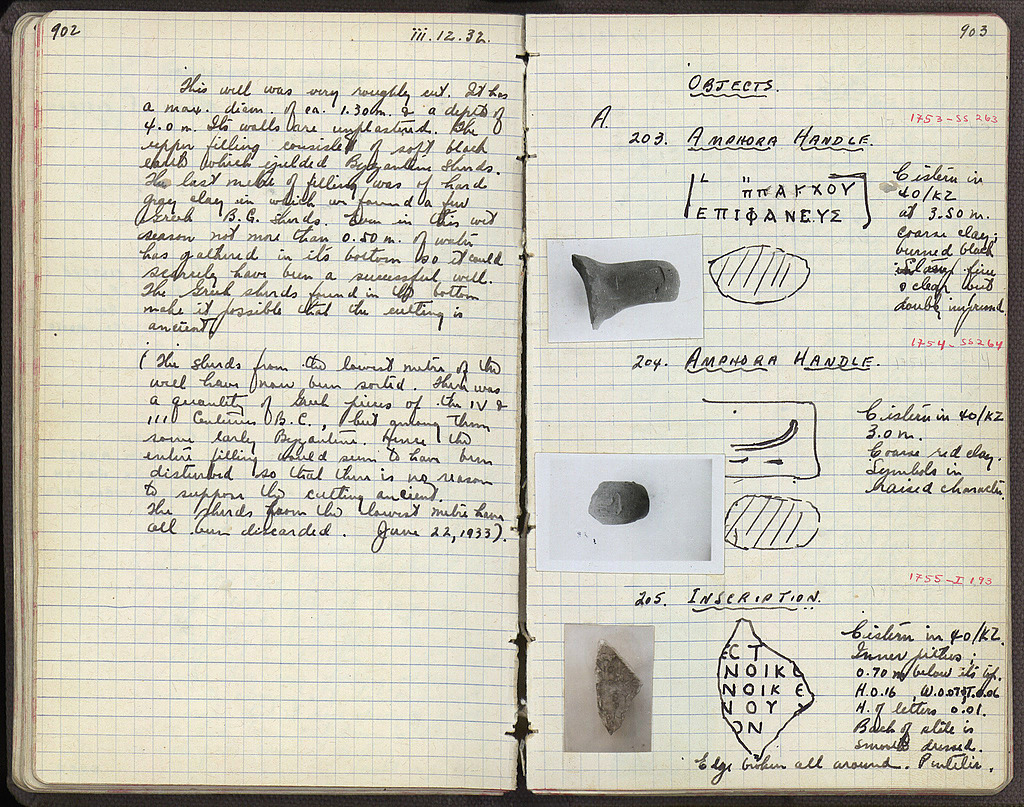 902
iii.12.32.
This well was very roughly cut. It has
a max. diam. of ca. 1.30 m. & a depth of
4.0 m. Its walls are unplastered. The
upper filling consisted of soft black
earth which yielded Byzantine sherds.
The last metre of filling was of hard
gray clay in which we found a few
Greek B.C. sherds. Even in this wet
season not more than 0.50 m. of water
has gathered in its bottom so it could
scarcely have been a successful well.
The Greek sherds found in the bottom
make it possible that the cutting is
ancient.
(The sherds from the lowest metre of the
well have now been sorted. There was
a quantity of Greek pieces of the IV &
III Centuries B.C., but among them
some early Byzantine. Hence the
entire filling would seem to have been
disturbed so that there is no reason
to suppose the cutting ancient.
The sherds from the lowest metre have
all been discarded. June 22, 1933).
903
OBJECTS.
A.
1753-SS 263
203. AMPHORA HANDLE.
ΠΠΑΡΧΟΥ
ΕΠΙΦΑΝΕΥΣ
Cistern in
40/ΚΖ
at 3.50 m.
Coarse clay;
burned black
fine
& clear but
double impressed.
1754-SS 264
204. AMPHORA HANDLE.
Cistern in 40/ΚΖ
3.0 m.
Coarse red clay.
Symbols in
raised characters
1755-I 193
205. INSCRIPTION.
ΕСΤ
ΝΟΙΚΕ
ΝΟΙΚΕ
ΝΟΥ
ΟΝ
Cistern in 40/ΚΖ.
Inner pithos;
0.70 m below its top.
H. 0.16, W. 0.07, T. 0.06
H. of letters 0.01.
Back of stele is
smooth dressed.
Edge broken all around. Pentelic.